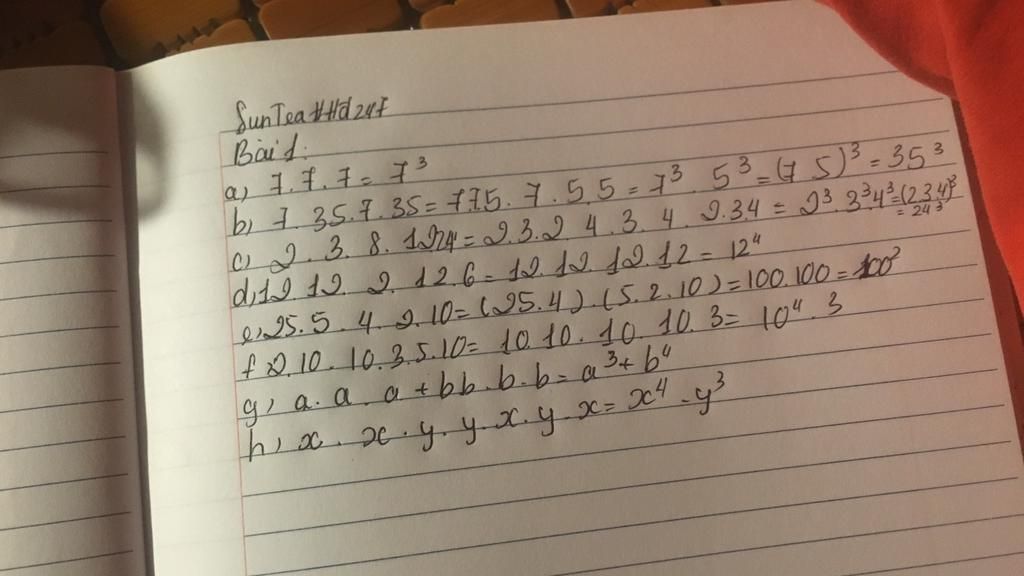 Bài 1:
a, 7.7.7 = 7³
b, 7.35.7.35 = 7.7.5.7.5.5 = 7³.5³ = (7 5)³ = 35³
c, 2.3.8.12.24 = 2.3.2 4.3.4.2.3 4 = 2³.3³.4³ = (2.3.4)³ = 24³
d, 12 12 2.12.6 = 12 12 12.12 = 12⁴
e, 25.5.4.2.10 = (25.4).(5.2.10) = 100.100 = 100²
f, 2.10.10.3.5.10 = 10.10.10 10.3 = 10⁴.3
g, a.a.a + b b.b.b = a³ + b⁴
h, x.x.y.y.x.y x = x⁴.y³